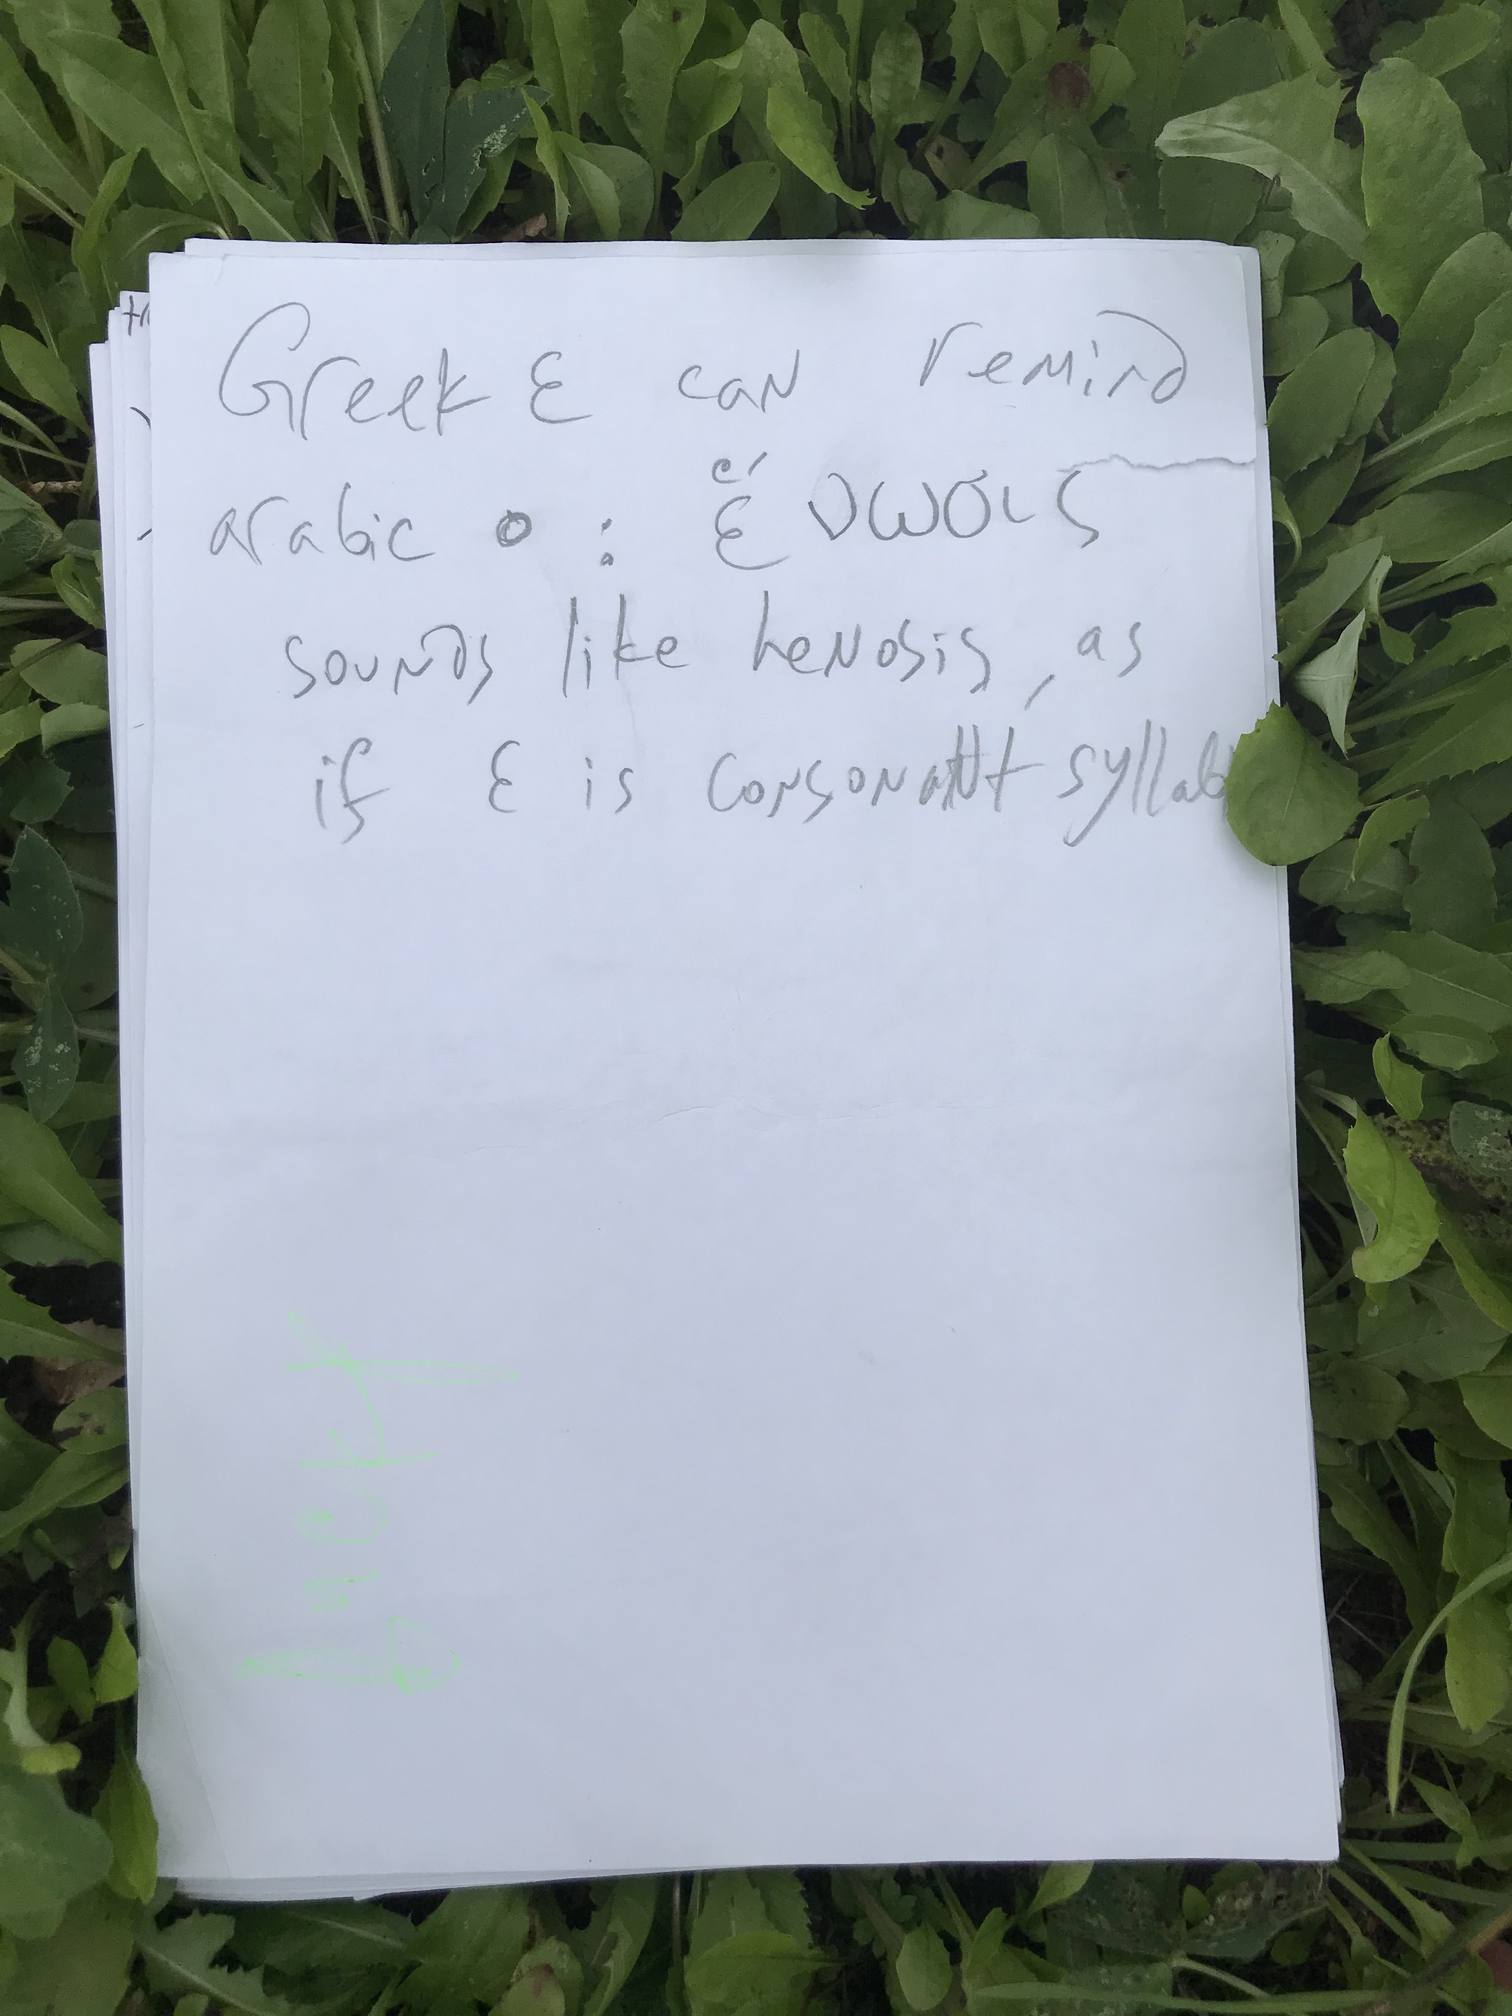 Greek ε can remind
arabic ه : ἕνωσις
sounds like henosis, as
if ε is consonant syllab